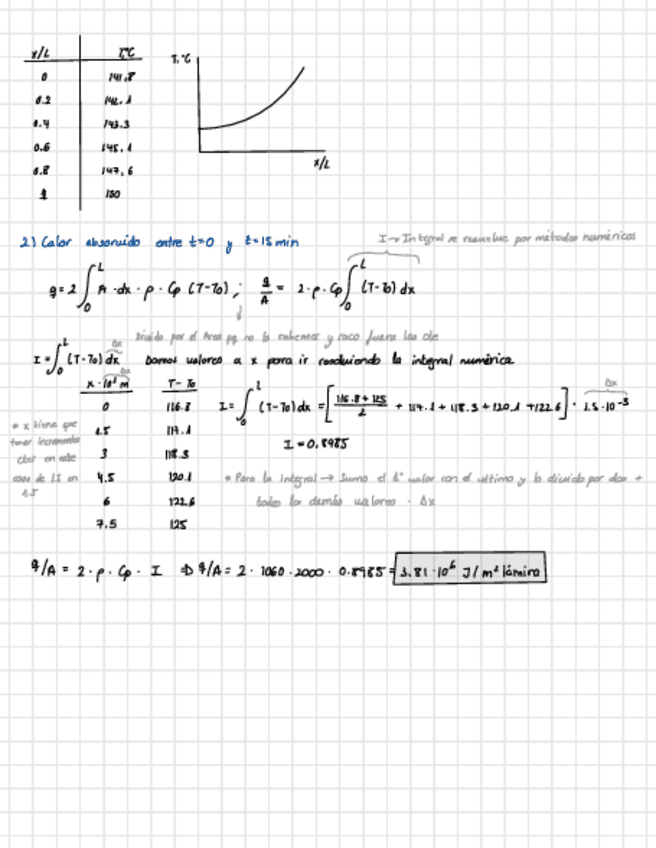 x/L T,°C
0 141.8
0.2 142.1
0.4 143.3
0.6 145.1
0.8 147.6
1 150
T,°C
x/L
2) Calor absorvido entre t=0 y t=15 min
I → Integral se resuelve por métodos numéricos
q = 2 ∫₀ᴸ A · dx · ρ · Cp (T-T₀) ; q/A = 2 · ρ · Cp ∫₀ᴸ (T-T₀) dx
Divido por el Area pq no la sabemos y saco fuera las cte
I = ∫₀ᴸ (T-T₀) dx Damos valores a x para ir resolviendo la integral numérica
Δx
x · 10³ m T - T₀
0 116.8
1.5 117.1
3 118.3
4.5 120.1
6 122.6
7.5 125
* x tiene que
tener incrementos
en este
caso de 1.5 en
1.5
I = ∫₀ᴸ (T-T₀) dx = [ (116.8 + 125)/2 + 117.1 + 118.3 + 120.1 + 122.6 ] · 1.5 · 10⁻³
Δx
I = 0,8985
* Para la integral → Sumo el 1° valor con el ultimo y lo divido por dos +
todos los demás valores · Δx
q/A = 2 · ρ · Cp · I ⇒ q/A = 2 · 1060 · 2000 · 0.8985 = 3.81 · 10⁶ J/m² lámina